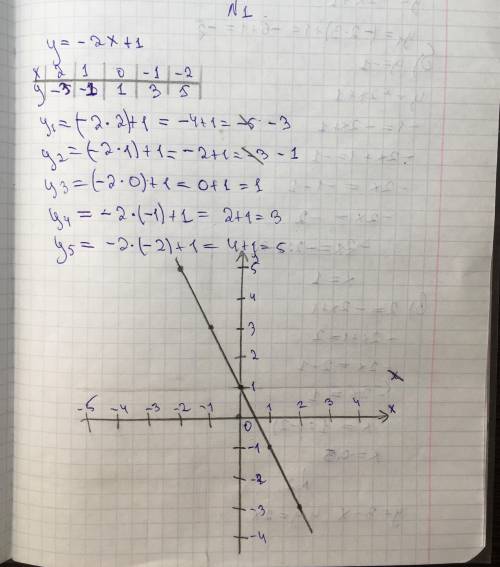 N1
y = -2x+1
x 2 1 0 -1 -2
y -3 -1 1 3 5
y₁ = (-2·2)+1 = -4+1 = -5 -3
y₂ = (-2·1)+1 = -2+1 = -3 -1
y₃ = (-2·0)+1 = 0+1 = 1
y₄ = -2·(-1)+1 = 2+1 = 3
y₅ = -2·(-2)+1 = 4+1 = 5
y
5
4
3
2
1
x
-5 -4 -3 -2 -1 1 2 3 4 x
0
-1
-2
-3
-4